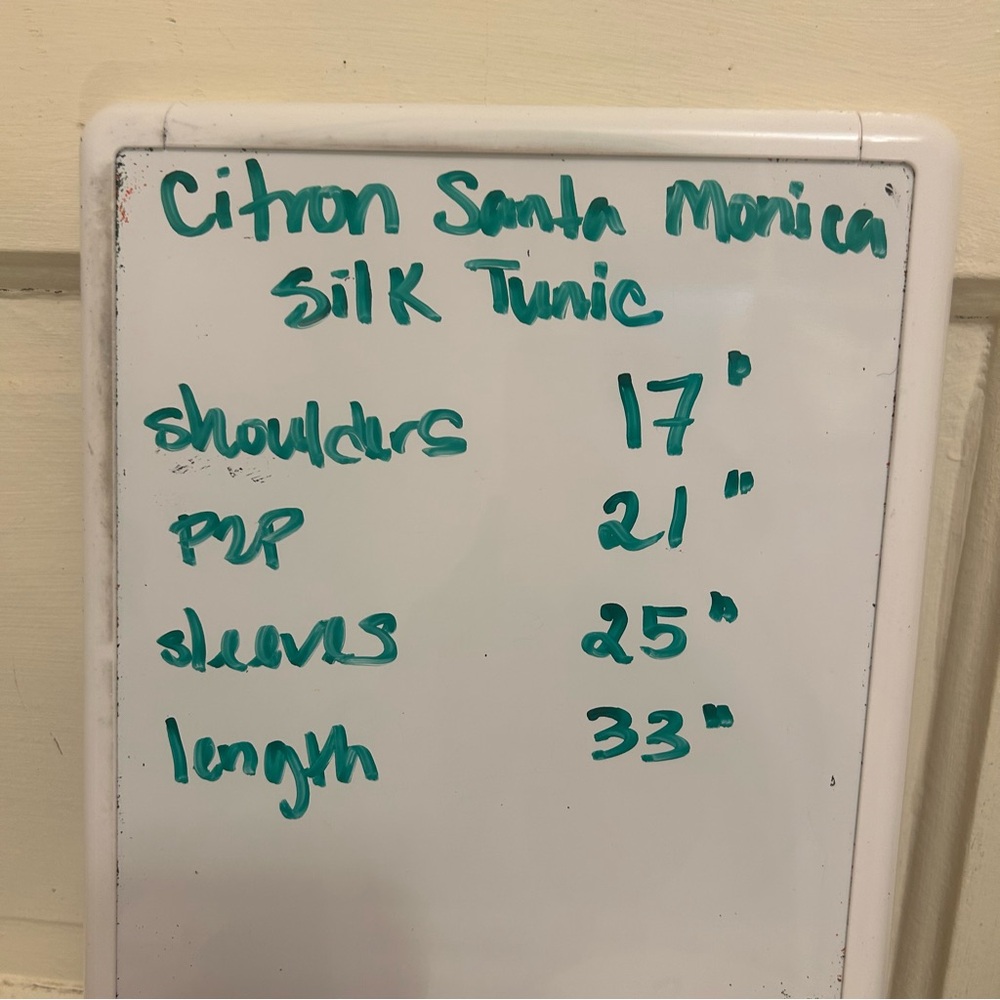 Citron Santa Monica
Silk Tunic
shoulders 17"
P2P 21"
sleeves 25"
length 33"